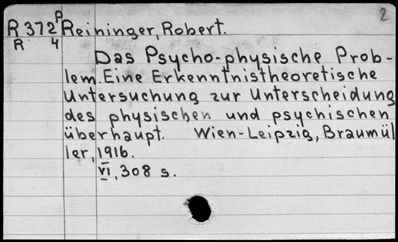 2
R 372 P Reininger, Robert.
R 4
Das Psycho-physische Prob-
lem. Eine Erkenntnistheoretische
Untersuchung zur Unterscheidung
des physischen und psychischen
überhaupt. Wien-Leipzig, Braumül
ler, 1916.
VI, 308 s.